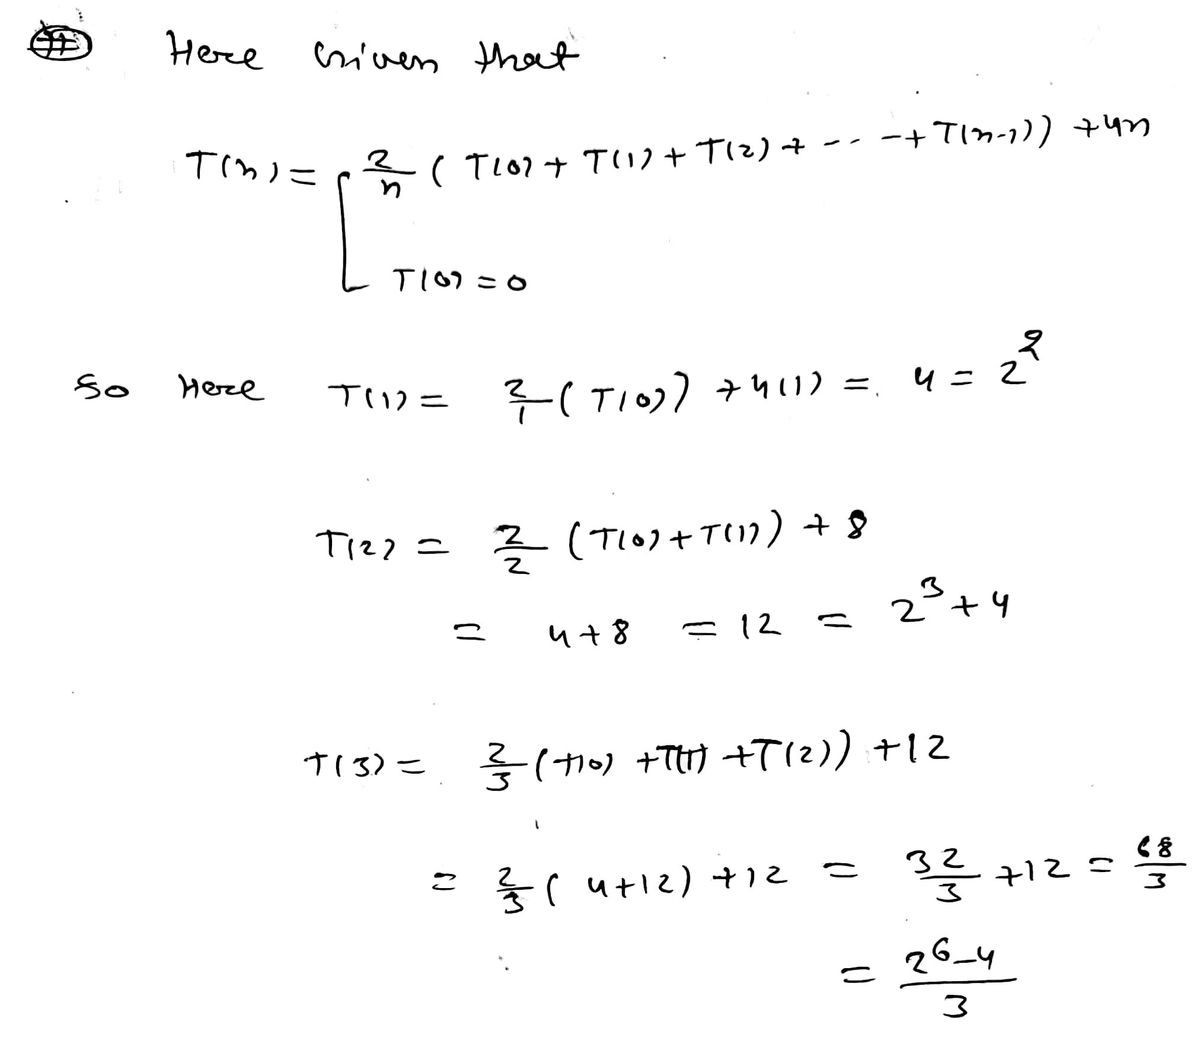 # Here Given that
T(n) = [ 2/n ( T(0) + T(1) + T(2) + -- -+ T(n-1)) + 4n
T(0) = 0
So Here T(1) = 2/1 ( T(0)) + 4(1) = 4 = 2^2
T(2) = 2/2 (T(0) + T(1)) + 8
= 4+8 = 12 = 2^3 + 4
T(3) = 2/3 (T(0) + T(1) + T(2)) + 12
= 2/3 ( 4+12) + 12 = 32/3 + 12 = 68/3
= (2^6 - 4)/3